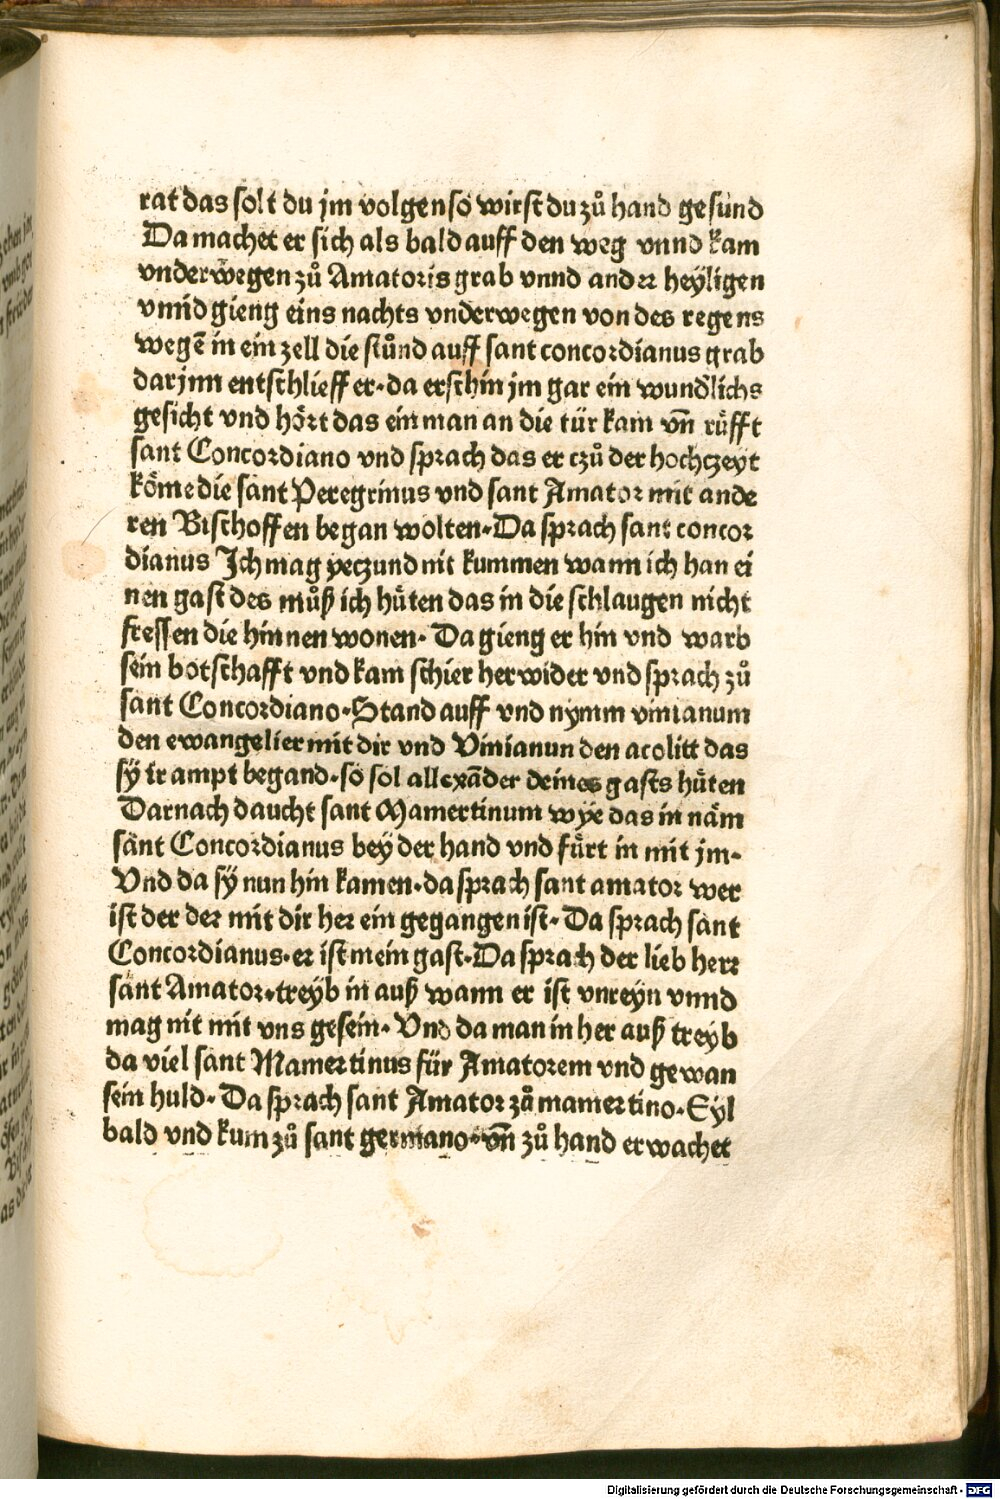 rat das solt du jm volgen so wirst du zů hand gesund
Da machet er sich als bald auff den weg vnnd kam
vnderwegen zů Amatoris grab vnnd ander heyligen
vnnd gieng eins nachts vnderwegen von des regens
wegē in ein zell die stůnd auff sant concordianus grab
darjnn entschlieff er. da erschin jm gar ein wundlichs
gesicht vnd hört das ein man an die tür kam vn̄ rüfft
sant Concordiano vnd sprach das er czů der hochczeyt
köme die sant Peregrinus vnd sant Amator mit ande
ren Bischoffen began wolten. Da sprach sant concor
dianus Ich mag yeczund nit kummen wann ich han ei
nen gast des můß ich hüten das in die schlangen nicht
fressen die hinnen wonen. Da gieng er hin vnd warb
sein botschafft vnd kam schier herwider vnd sprach zů
sant Concordiano. Stand auff vnd nymm vinianum
den ewangelier mit dir vnd Vinianun den acolitt das
sÿ ir ampt begand. so sol allexāder deines gasts hüten
Darnach daucht sant Mamertinum wÿe das in näm
sant Concordianus bey der hand vnd fürt in mit jm.
Vnd da sÿ nun hin kamen. da sprach sant amator wer
ist der der mit dir her ein gegangen ist. Da sprach sant
Concordianus. er ist mein gast. Da sprach der lieb herr
sant Amator. treyb in auß wann er ist vnreyn vnnd
mag nit mit vns gesein. Vnd da man in her auß treyb
da viel sant Mamertinus für Amatorem vnd gewan
sein huld. Da sprach sant Amator zů mamertino. Eyl
bald vnd kum zů sant germano. vn̄ zů hand erwachet
Digitalisierung gefördert durch die Deutsche Forschungsgemeinschaft - DFG